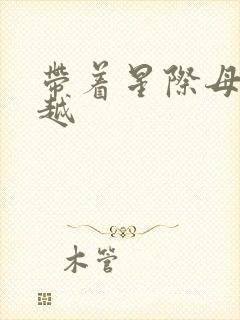 帶着星際母
越
木管